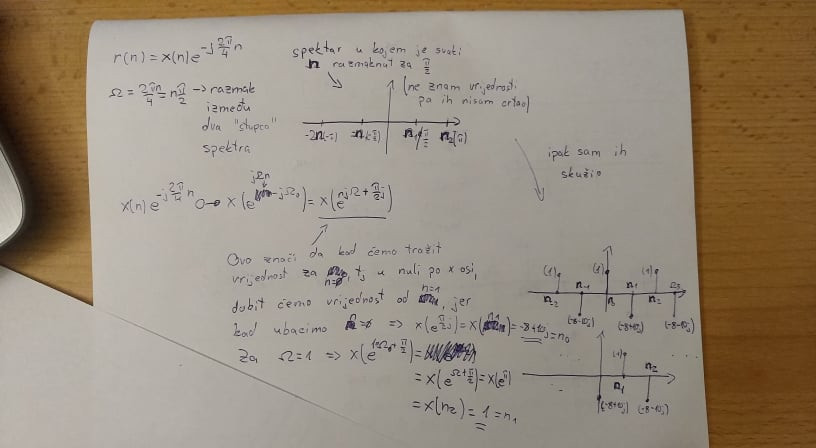 r(n) = x(n) e^{-j 2π/4 n}
Ω = 2πn/4 = n π/2 → razmak
između
dva "stupca"
spektra
spektar u kojem je svaki
n razmaknut za π/2
(ne znam vrijednosti
pa ih nisam crtao)
ipak sam ih
skužio
x(n) e^{-j 2π/4 n} x(e) = x(e^{njΩ + π/2 j})
Ovo znači da kad ćemo tražit
vrijednost za n=0, tj u nuli po x osi,
dobit ćemo vrijednost od n=1, jer
kad ubacimo => x(e^{π/2 j}) = x(n1) = -8+10j = n0
Za Ω=1 =>
= x(e^{Ω+π/2}) = x(e^{π})
= x(n2) = 1 = n1
(1) (1) (1)
n-2 n-1 n n1 n2 n3
(-8-10j) (-8+10j) (-8-10j)
(1) n2
n1
(-8+10j) (-8-10j)